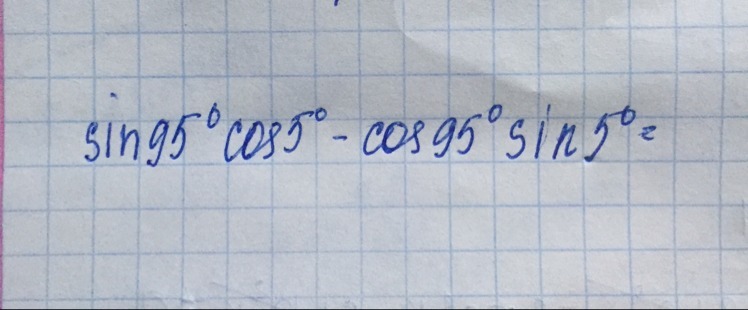 sin95°cos5°-cos95°sin5°=